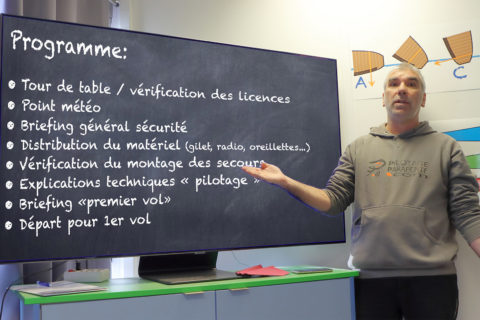 Programme:
• Tour de table / vérification des licences
• Point météo
• Briefing général sécurité
• Distribution du matériel (gilet, radio, oreillettes...)
• Vérification du montage des secours
• Explications techniques « pilotage »
• Briefing «premier vol»
• Départ pour 1er vol
A
C
PILOTAGE
PARAPENTE
.com